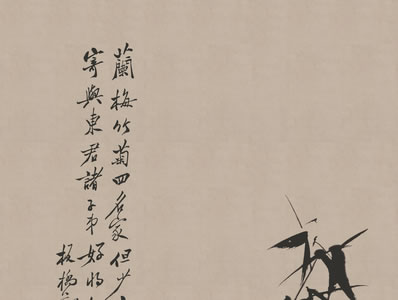 蘭梅竹菊四名家但少
寄與東君諸子弟好將
板橋